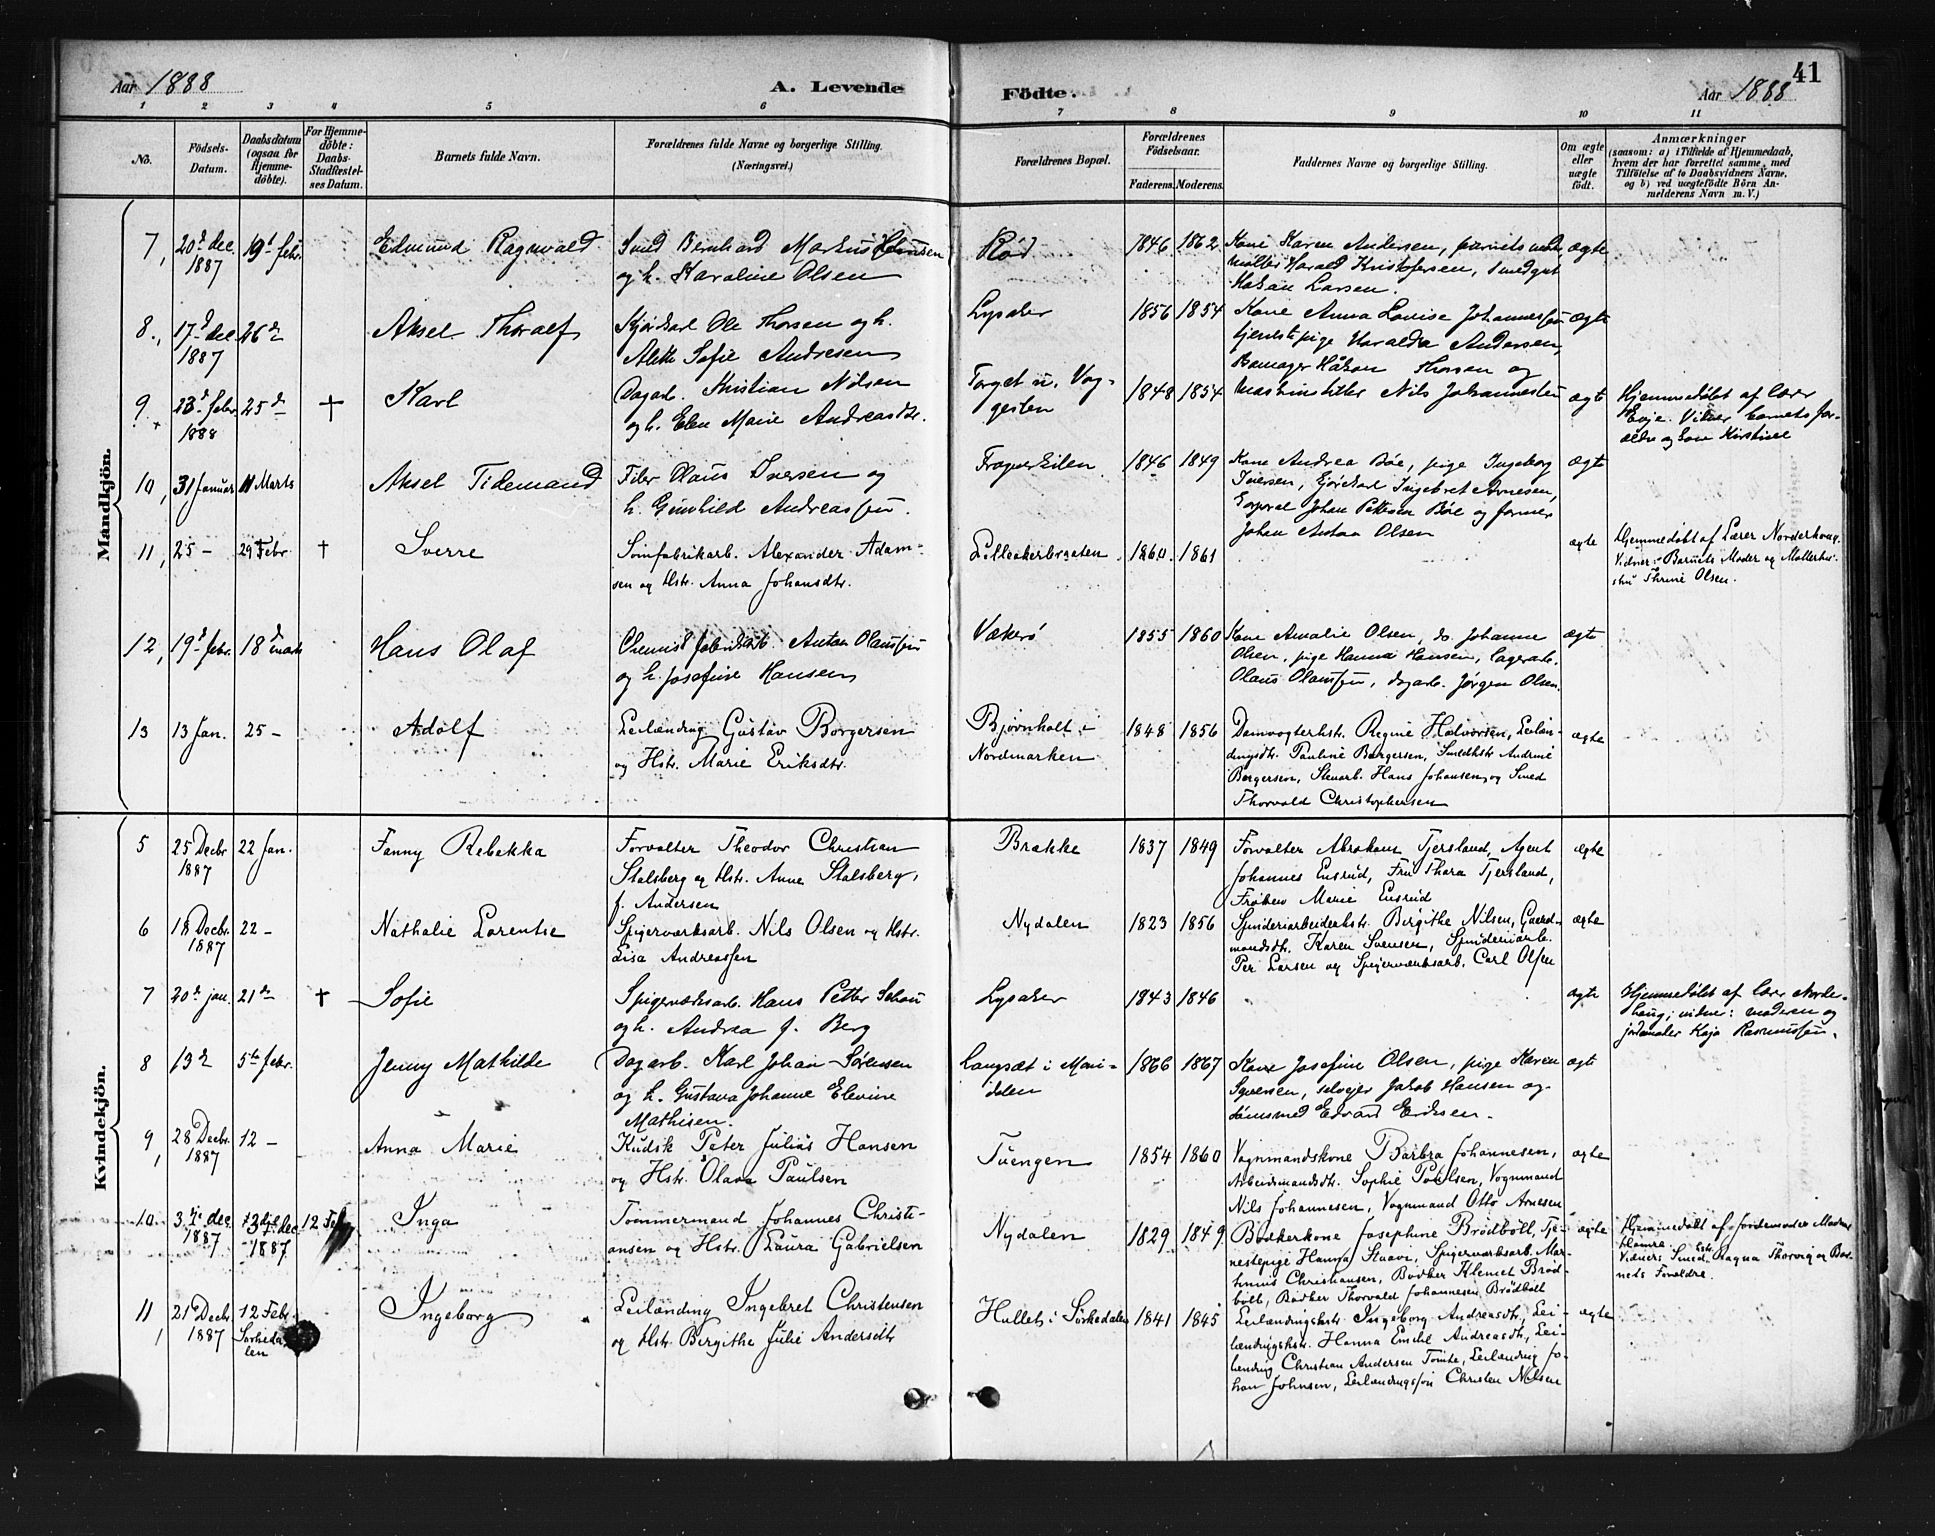 Aar 1888
A. Levende
Födte.
Aar 1888
41
1 2 3 4 5 6 7 8 9 10 11
No.
Födsels-Datum.
Daabsdatum (ogsaa for Hjemme-döbte).
For Hjemme-döbte: Daabs-Stadfæstel-ses Datum.
Barnets fulde Navn.
Forældrenes fulde Navne og borgerlige Stilling.
(Næringsvei.)
Forældrenes Bopæl.
Forældrenes Födselsaar.
Faderens. Moderens.
Faddernes Navne og borgerlige Stilling.
Om ægte eller uægte födt.
Anmærkninger
(saasom: a) i Tilfælde af Hjemmedaab, hvem der har forrettet samme, med Tilföielse af to Daabsvidners Navne, og b) ved uægtefödte Börn An-melderens Navn m. V.)
Mandkjön.
7, 20d dec. 1887 19d febr. Edmund Ragnvald
Smed Bernhard Markus Hansen
og h. Karoline Olsen
Rød 1846 1862
Kone Karen Andersen,
Harald Kristofersen, smedgut
Hakan Larsen.
ægte
8., 17d dec. 1887 26d Aksel Thoralf
Kjørekarl Ole Thorsen og h.
Aleth Sofie Andresen
Lysaker 1856 1854
Kone Anna Lovise Johannessen
tjenestepige Haralda Andersen,
Håkon Thorsen og
maskinstiller Nils Johannesen
ægte
9. 23d febr. 1888 25d † Karl
Dagarb. Kristian Nilsen
og h. Elen Marie Andreasdtr.
Torget u. Vog-
gesten 1848 1854
ægte
Hjemmedøbt af lærer
Evje. Vidner barnets for-
ældre og Kirstine
10, 31 Januar 11 Marts Aksel Tidemand
Filer Olaus Iversen og
h. Gunhild Andreassen.
Fragnerkilen 1846 1849
Kone Andrea Bøe, pige Ingeborg
Iversen, kjørekarl Ingebret Arnesen,
Korporal Johan Pettersen Bøe og former
Johan Anton Olsen
ægte
11, 25 - 29 Febr † Sverre
Sömfabrikarb. Alexander Adam-
sen og Hstr. Anna Johansdtr.
Lilleakerbraaten. 1860. 1861
ægte
Hjemmedøbt af Lærer Norderhoug.
Vidner: Barnets Moder og Møllerhu-
stru Thrine Olsen.
12, 19d febr. 18d marts Hans Olaf
Chemisk fabrikarb. Anton Olaussen
og h. Josefine Hansen
Vækerö 1855 1860
Kone Amalie Olsen, do. Johanne
Olsen, pige Hanna Hansen, lagerarb.
Olaus Olaussen, dagarb. Jørgen Olsen.
ægte
13 13 Jan. 25 - Adolf
Leilænding Gustav Borgersen
og Hstr. Marie Eriksdtr.
Bjørnholt i
Nordmarken 1848 1856
Damvogterhstr. Regine Halvorsen, Leilæn-
dingsdtr. Pauline Borgersen, Smedhstr. Andrine
Borgersen, Stenarb. Hans Johansen, og Smed
Thorvald Christophersen
ægte
Kvindekjön.
5 25 Decbr 1887 22 Jan. Fanny Rebekka
Forvalter Theodor Christian
Stalsberg og Hstr. Anne Stalsberg,
f. Andersen
Brække 1837 1849
Forvalter Abraham Tjersland, Agent
Johannes Ensrud, Fru Thora Tjersland,
Frøken Marie Ensrud
ægte
6 18 Decbr. 1887 22 - Nathalie Lorentse
Spigerværksarb. Nils Olsen og Hstr.
Lisa Andreassen
Nydalen 1823 1856
Spinderiarbeiderhstr. Birgithe Nilsen, Gaard-
mandsdtr. Karen Svensen, Spinderiarb.
Per Larsen og Spigerværksarb. Carl Olsen
ægte
7 20d jan. 21d † Sofie
Spigerværksarb. Hans Petter Schou
og h. Andrea f. Berg
Lysaker 1843 1846
ægte
Hjemmedøbt af lærer Norde-
haug; vidner: moderen og
jordmoder Kaja Rasmussen.
8 13d 5te febr. Jenny Mathilde
Dagarb. Karl Johan Sørensen
og h. Gustava Johanne Elevine
Mathisen.
Langsæt i Mari-
dalen 1866 1867
Kone Josefine Olsen, pige Karen
Syversen, selveier Jakob Hansen og
Edvard Eriksen.
ægte
9, 28 Decbr. 1887 12 - Anna Marie
Kudsk Peter Julius Hansen
og Hstr. Olava Paulsen
Tuengen 1854 1860
Vognmandskone Barbra Johannesen,
Arbeidsmandsdtr. Sophie Poulsen, Vognmand
Nils Johannesen, Vognmand Otto Arnesen
ægte
10, 3 dec. 1887 dec 1887 12 Feb Inga
Tømmermand Johannes Christi-
ansen og Hstr. Laura Gabrielsen
Nydalen 1829 1849
Bødkerkone Josephine Brødbøll, Tje-
nestepige Hanna Staavi, Spigerværksarb. Mar-
thinius Christiansen, Bødker Klemet Brød-
bøll, Bødker Thorvald Johannesen Brødbøll
ægte
Hjemmedøbt af Jordemoder
Hamre.
Vidner: Smed hstr. Ragna Thorvig og Bar-
nets Forældre.
11, 21 Decbr 1887 12 Febr. Sørkeda-
len Ingeborg
Leilænding Ingebret Christensen
og Hstr. Birgithe Julie Andersdtr
Hullet i Sørkedalen 1841 1845
Leilændingshstr. Ingeborg Andreasdtr, Lei-
lændingshstr. Hanna Emilie Andreasdtr, Lei-
lænding Christian Andersen Tømte, Leilænding Jo-
han Johnsen, Leilændingssøn Christen Nilsen
ægte